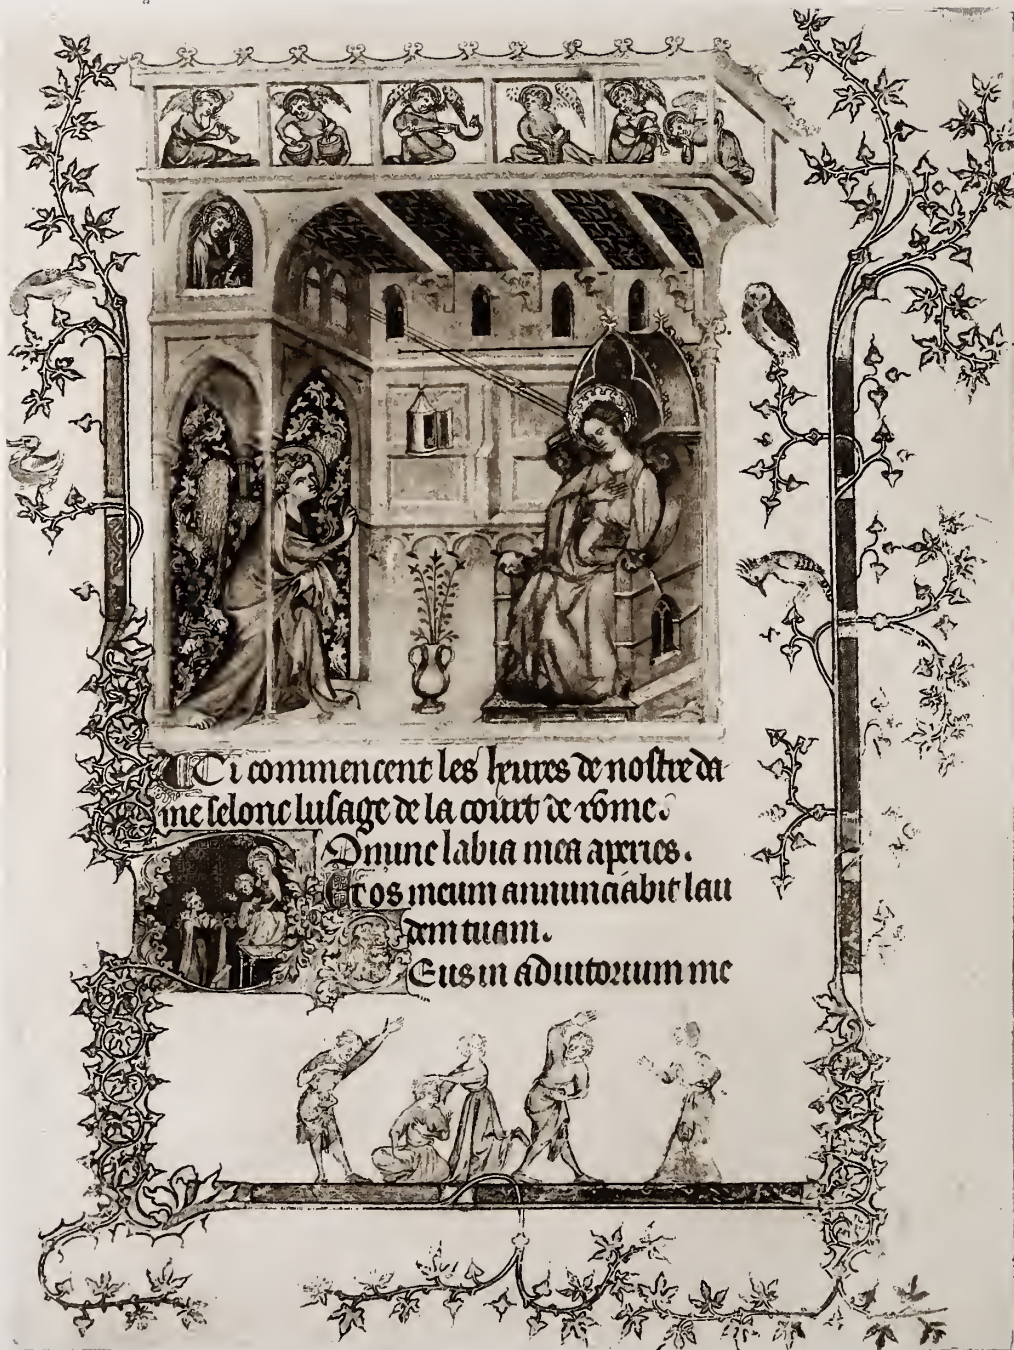 Ci commencent les heures de nostre da
me selonc lusage de la court de rõme.
Dmine labia mea aperies.
Et os meum annunciabit lau
dem tuam.
Eus in adiutorium me